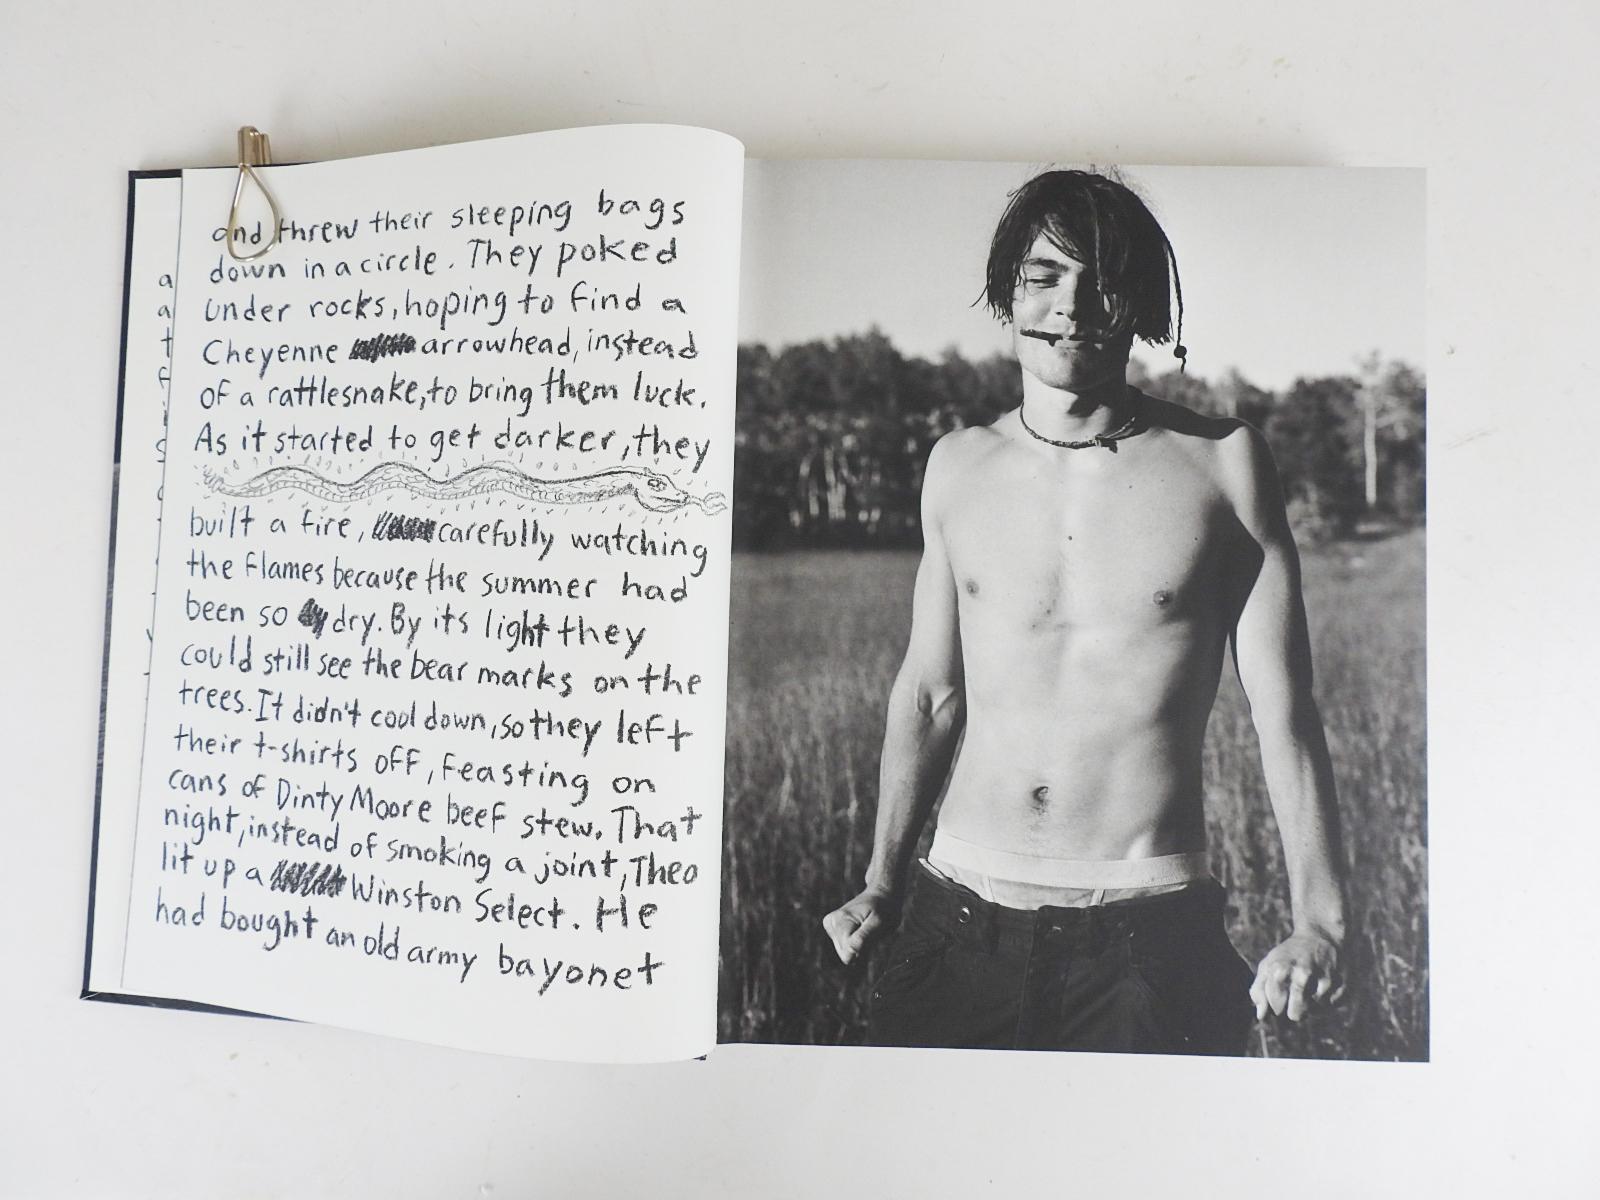 and threw their sleeping bags
down in a circle. They poked
under rocks, hoping to find a
Cheyenne arrowhead, instead
of a rattlesnake, to bring them luck.
As it started to get darker, they
built a fire, carefully watching
the flames because the summer had
been so dry. By its light they
could still see the bear marks on the
trees. It didn't cool down, so they left
their t-shirts off, feasting on
cans of Dinty Moore beef stew. That
night, instead of smoking a joint, Theo
lit up a Winston Select. He
had bought an old army bayonet